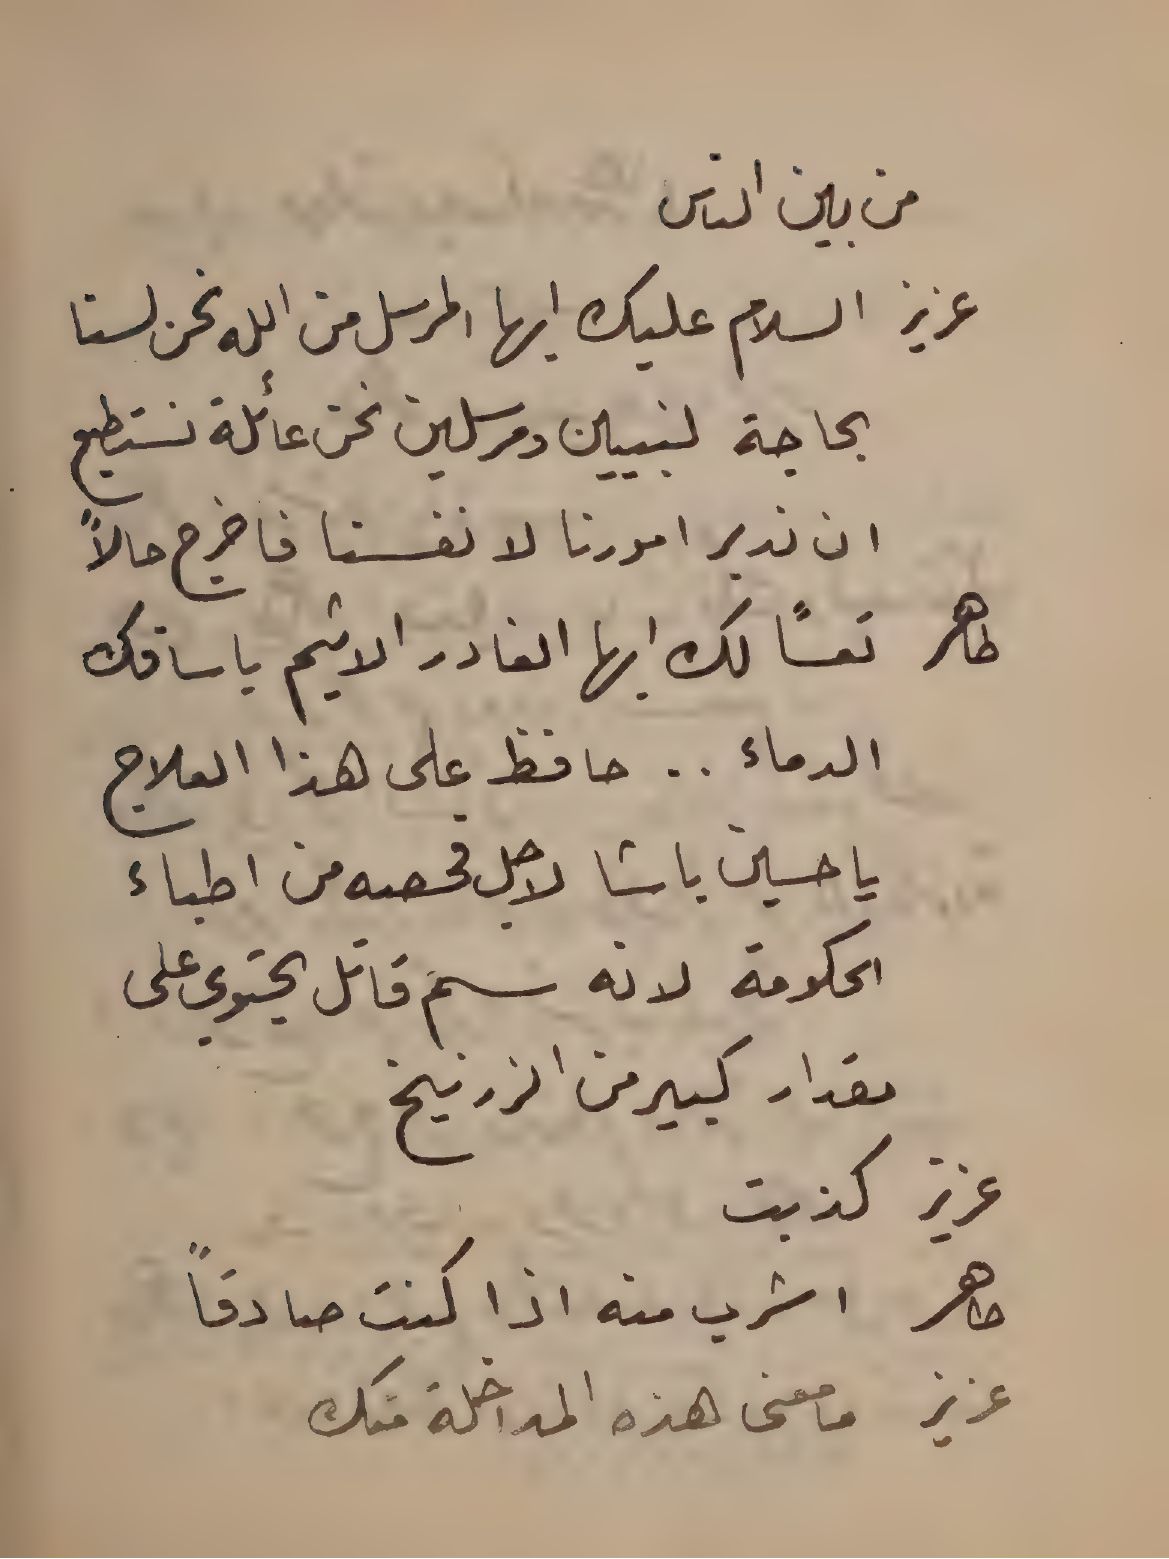 من بين الناس
عزيز السلام عليك ايها المرسل من الله نحن لسنا
بحاجة لنبيين ومرسلين نحن عائلة نستطيع
ان ندبر امورنا لانفسنا فاخرج حالاً
طاهر تعساً لك ايها الغادر الاثيم ياسافك
الدماء .. حافظ على هذا العلاج
ياحسين باشا لاجل فحصه من اطباء
الحكومة لانه سم قاتل يحتوي على
مقدار كبير من الزرنيخ
عزيز كذبت
طاهر اشرب منه اذا كنت صادقاً
عزيز مامعنى هذه المداخلة منك